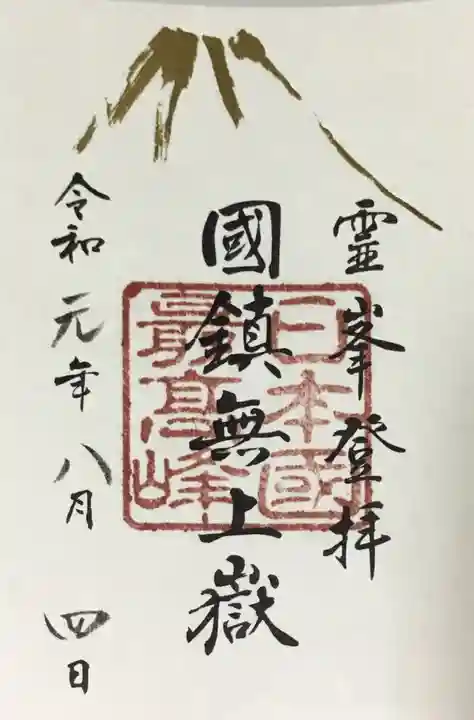 霊峯登拝
國鎮無上嶽
日本國
最高峰
令和元年八月四日